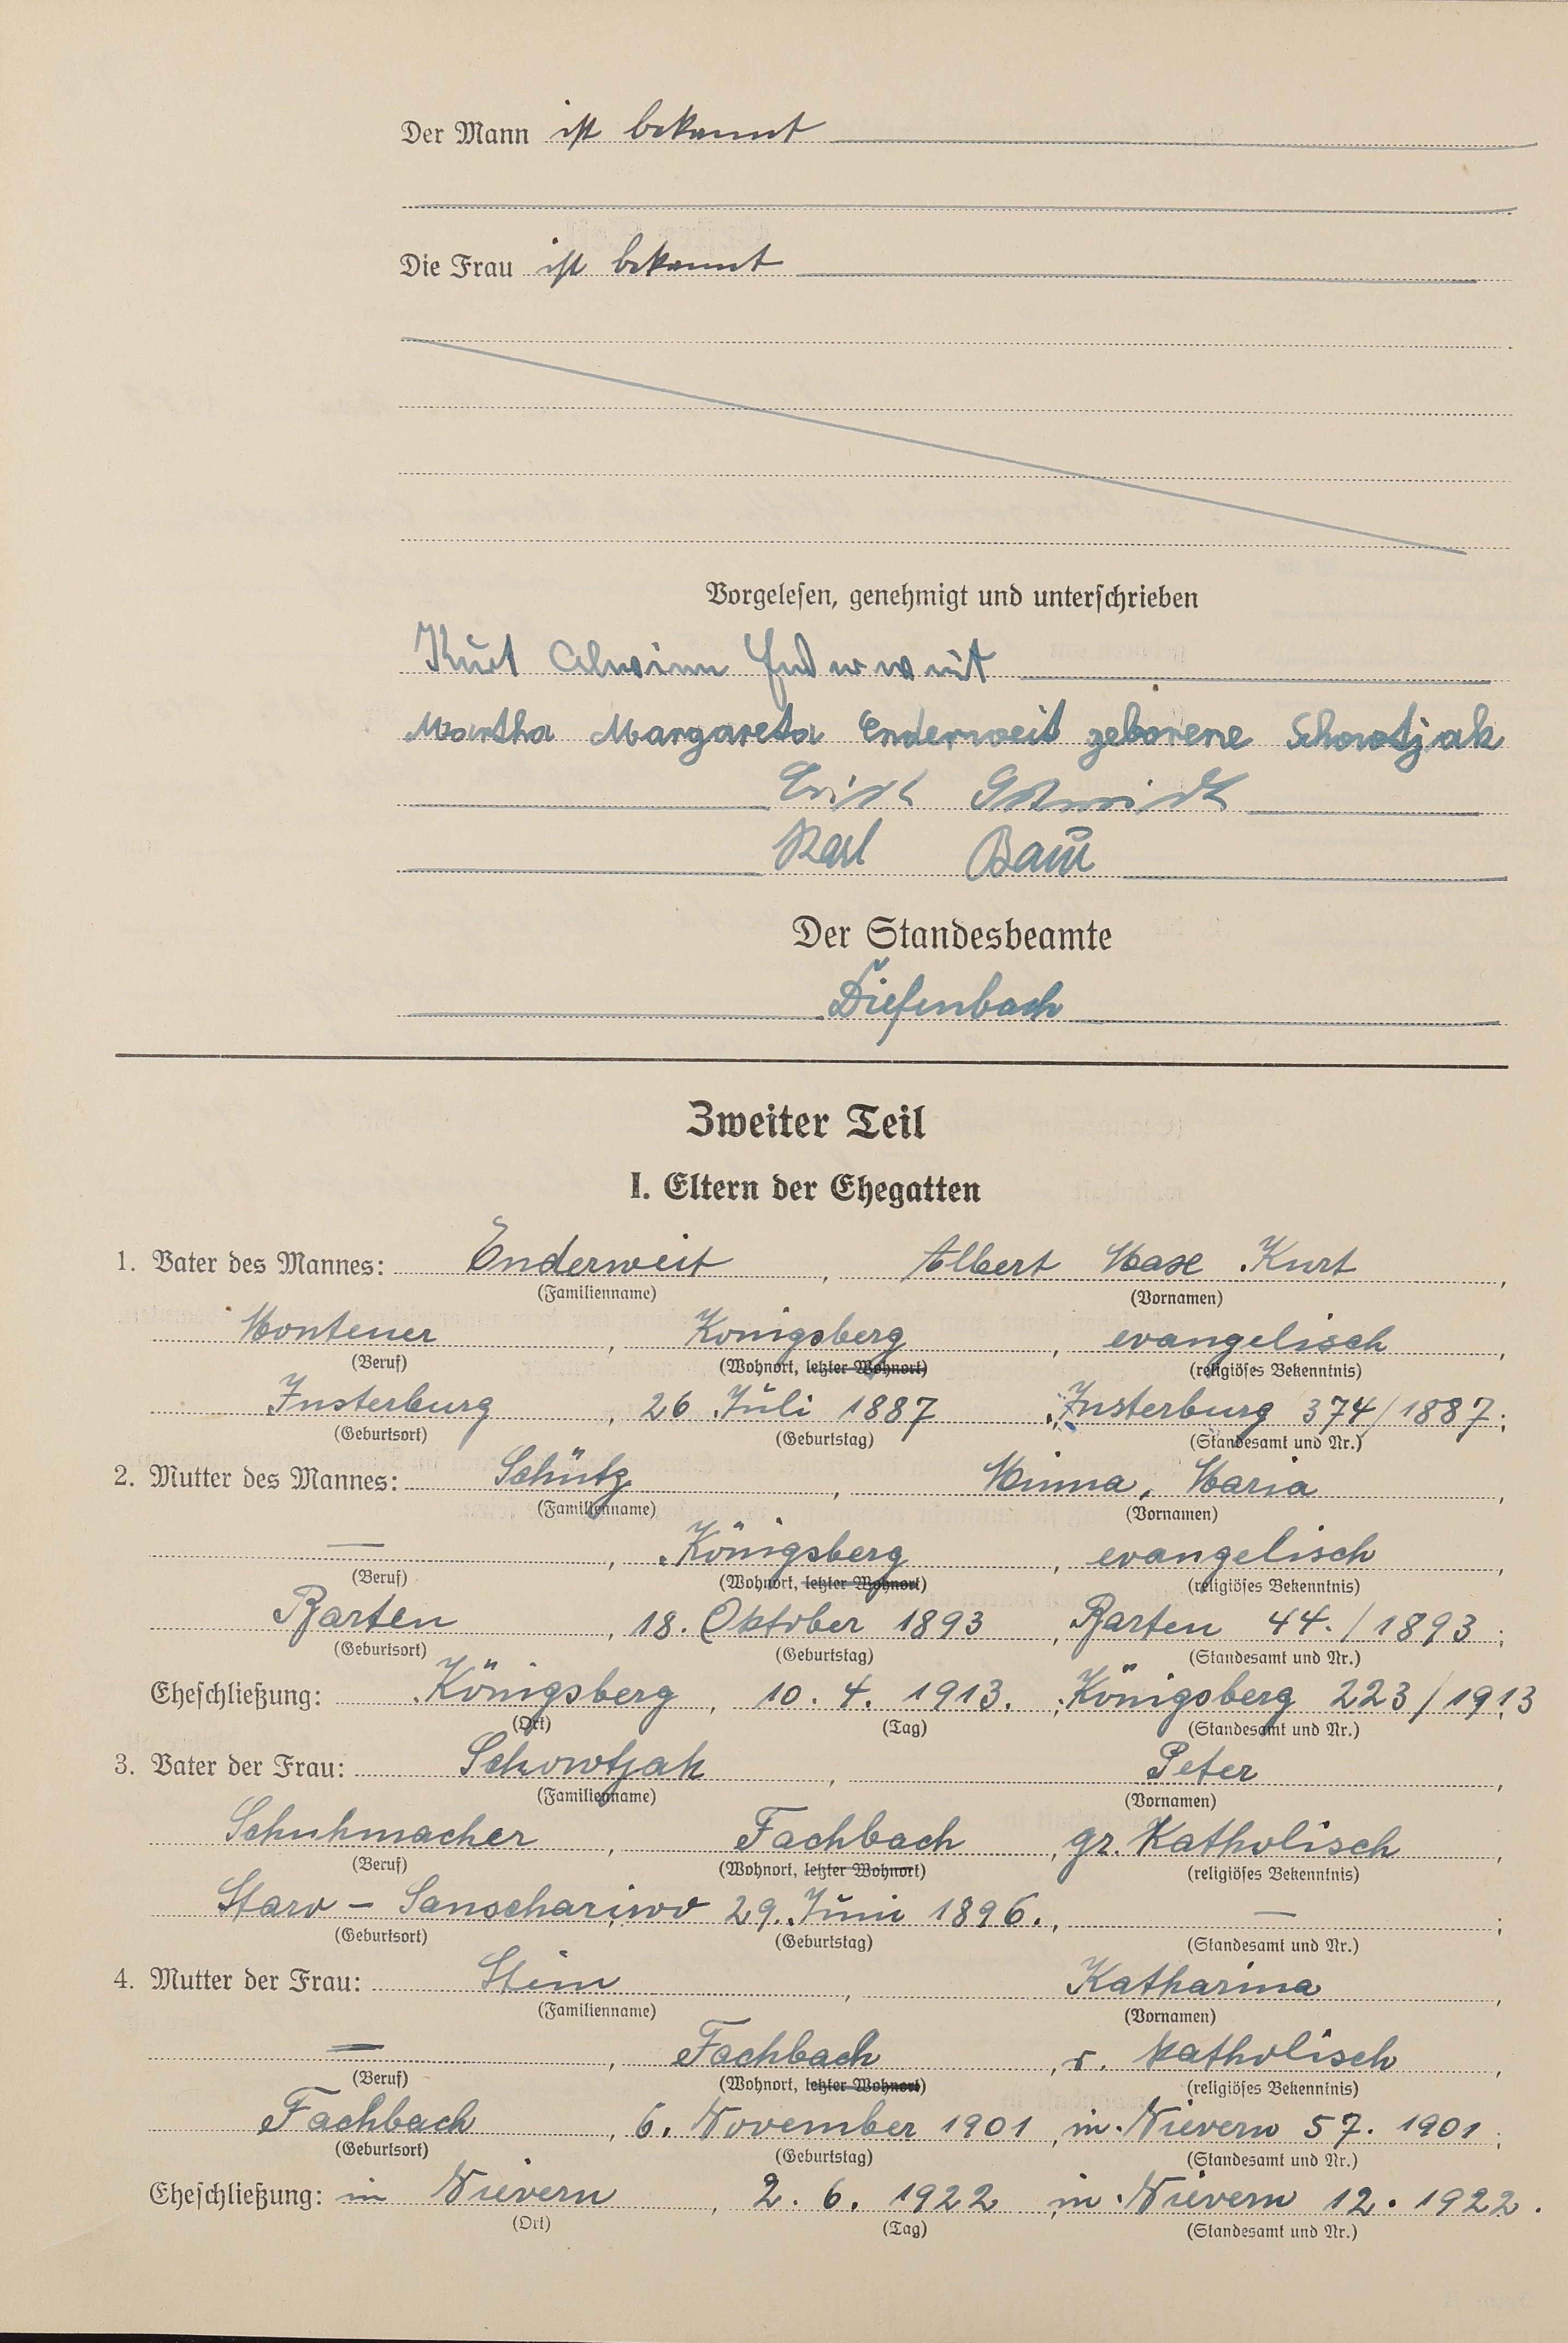 Der Mann ist bekannt
Die Frau ist bekannt
Vorgelesen, genehmigt und unterschrieben
Kurt Alwinn Enderweit
Martha Margareta Enderweit geborene Schowtjak
Erich Schmidt
Karl Baur
Der Standesbeamte
Diefenbach
Zweiter Teil
I. Eltern der Ehegatten
1. Vater des Mannes: Enderweit, Albert Maxe Kurt,
(Familienname) (Vornamen)
Monteuer, Königsberg, evangelisch,
(Beruf) (Wohnort, letzter Wohnort) (religiöses Bekenntnis)
Insterburg, 26 Juli 1887, Insterburg 374/1887;
(Geburtsort) (Geburtstag) (Standesamt und Nr.)
2. Mutter des Mannes: Schütz, Minna, Maria,
(Familienname) (Vornamen)
—, Königsberg, evangelisch,
(Beruf) (Wohnort, letzter Wohnort) (religiöses Bekenntnis)
Barten, 18. Oktober 1893, Barten 44./1893;
(Geburtsort) (Geburtstag) (Standesamt und Nr.)
Eheschließung: Königsberg, 10. 4. 1913., Königsberg 223/1913
(Ort) (Tag) (Standesamt und Nr.)
3. Vater der Frau: Schowtjak, Peter,
(Familienname) (Vornamen)
Schuhmacher, Fachbach, gr. Katholisch,
(Beruf) (Wohnort, letzter Wohnort) (religiöses Bekenntnis)
Staro – Sanschariwo 29. Juni 1896., —;
(Geburtsort) (Geburtstag) (Standesamt und Nr.)
4. Mutter der Frau: Stein, Katharina,
(Familienname) (Vornamen)
—, Fachbach, r. katholisch,
(Beruf) (Wohnort, letzter Wohnort) (religiöses Bekenntnis)
Fachbach, 6. November 1901, in Nievern 57. 1901;
(Geburtsort) (Geburtstag) (Standesamt und Nr.)
Eheschließung: in Nievern, 2. 6. 1922, in Nievern 12. 1922.
(Ort) (Tag) (Standesamt und Nr.)